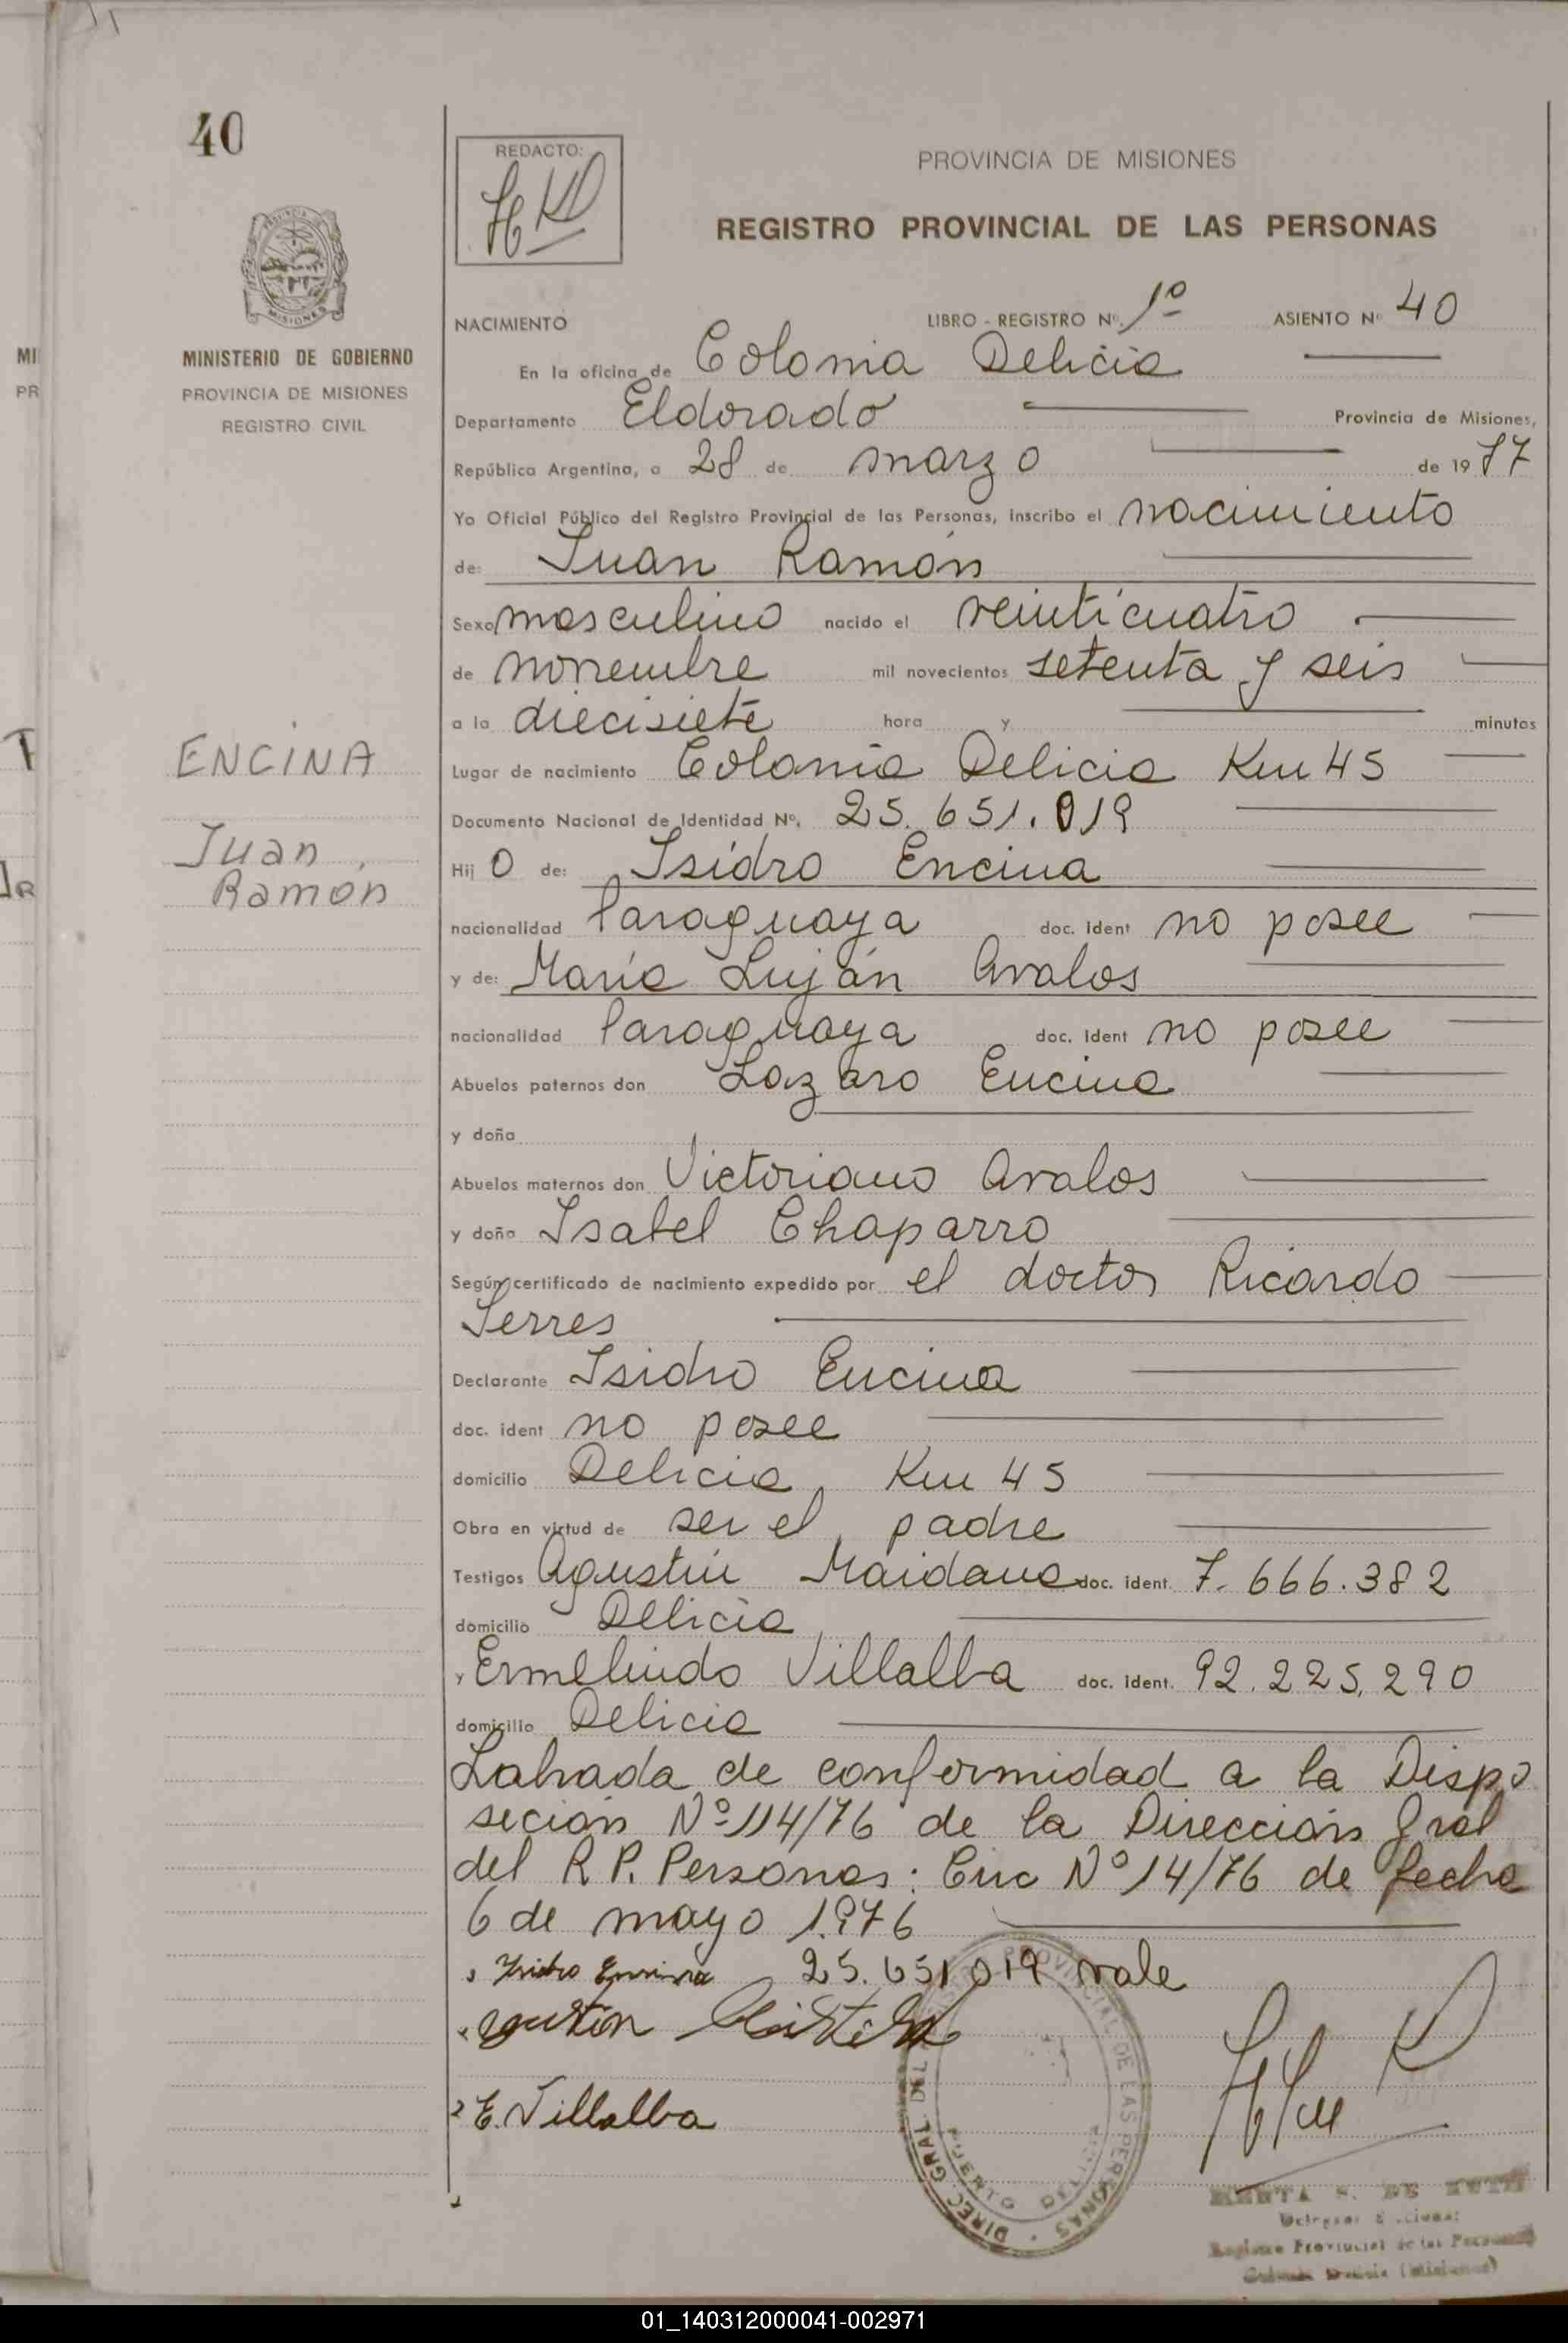 40
MINISTERIO DE GOBIERNO
PROVINCIA DE MISIONES
REGISTRO CIVIL
ENCINA
Juan
Ramón
REDACTO:
PROVINCIA DE MISIONES
REGISTRO PROVINCIAL DE LAS PERSONAS
NACIMIENTO LIBRO - REGISTRO Nº 1º ASIENTO Nº 40
En la oficina de Colonia Delicia
Departamento Eldorado Provincia de Misiones,
República Argentina, a 28 de marzo de 1977
Yo Oficial Público del Registro Provincial de las Personas, inscribo el nacimiento
de: Juan Ramón
Sexo masculino nacido el veinticuatro
de noviembre mil novecientos setenta y seis
a la diecisiete hora y minutos
Lugar de nacimiento Colonia Delicia Km 45
Documento Nacional de Identidad Nº. 25.651.019
Hij o de: Isidro Encina
nacionalidad Paraguaya doc. ident no posee
y de: María Luján Avalos
nacionalidad Paraguaya doc. ident no posee
Abuelos paternos don Lazaro Encina
y doña
Abuelos maternos don Victoriano Avalos
y doña Isabel Chaparro
Según certificado de nacimiento expedido por el doctor Ricardo
Serres
Declarante Isidro Encina
doc. ident no posee
domicilio Delicia, Km 45
Obra en virtud de ser el padre
Testigos Agustín Maidana doc. ident. 7.666.382
domicilio Delicia
y Ermelindo Villalba doc. ident. 92.225.290
domicilio Delicia
Labrada de conformidad a la Dispo
sición Nº 114/76 de la Dirección Gral
del R P. Personas: Circ Nº 14/76 de fecha
6 de mayo 1.976
Isidro Encina 25.651019 vale
agustin
E. Villalba
DIREC GRAL DEL REGISTRO PROVINCIAL DE LAS PERSONAS
PUERTO DELICIA
Registro Provincial de las Personas
Colonia Delicia (Misiones)
01_140312000041-002971